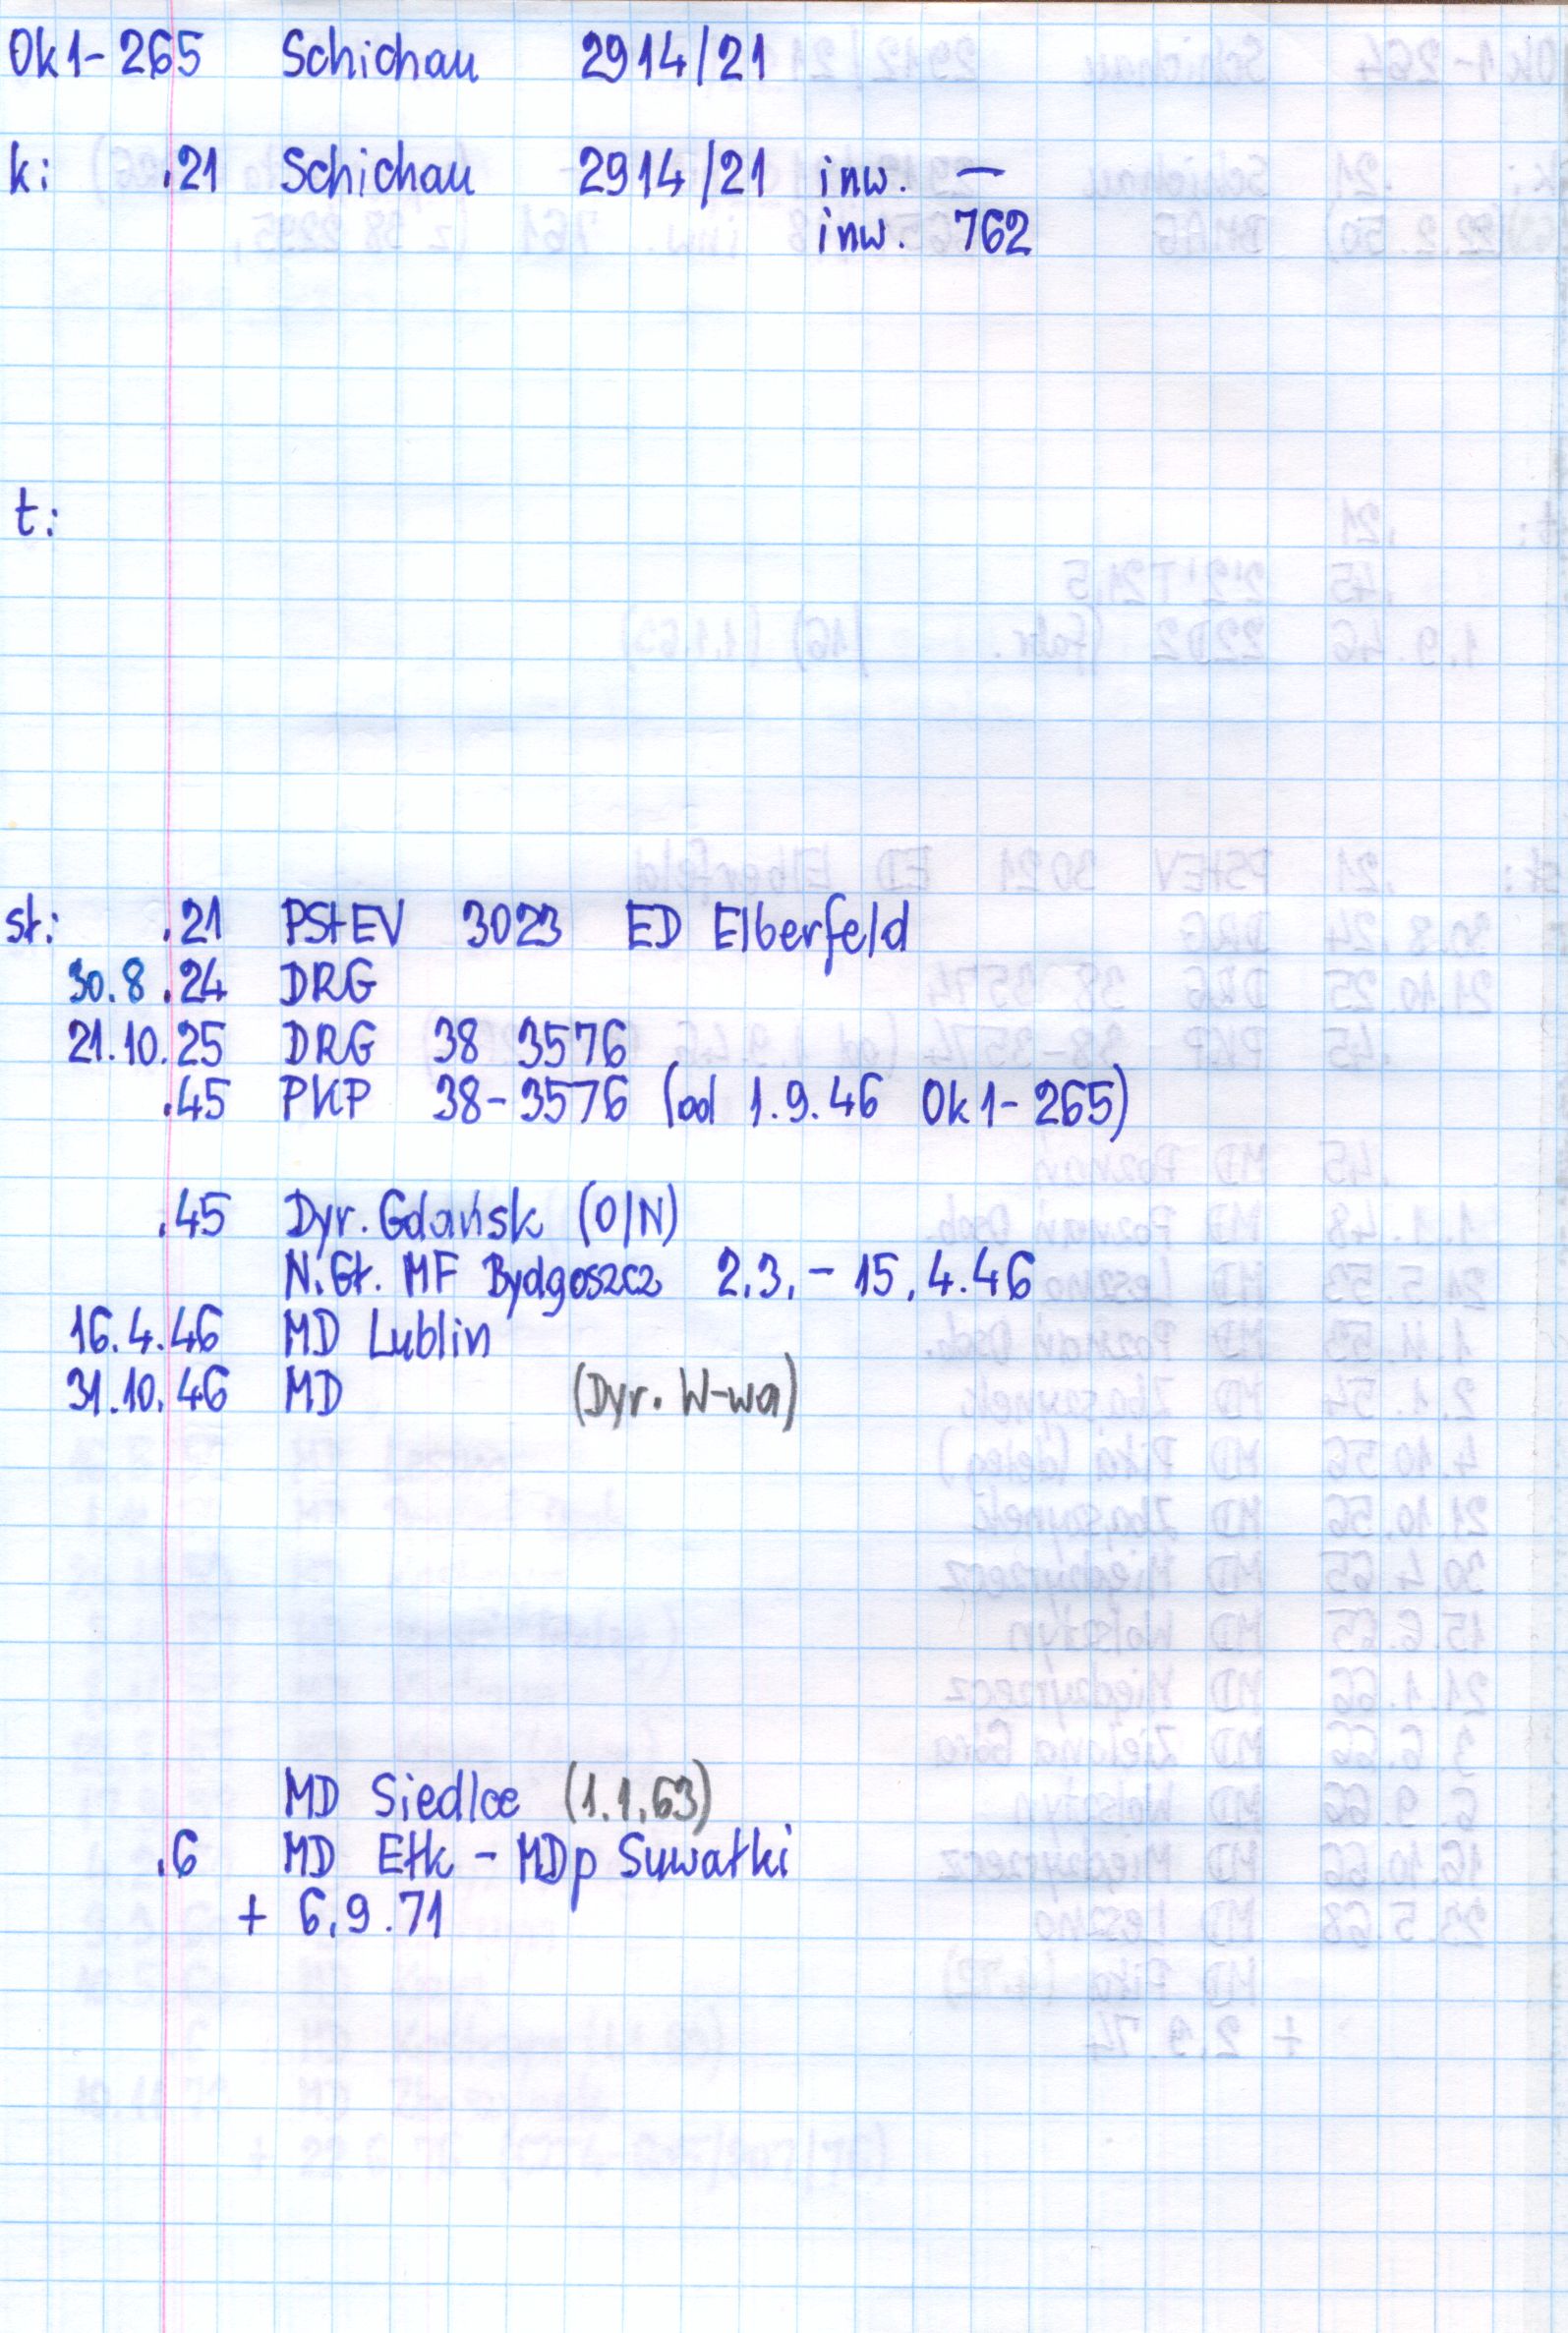 Ok1-265 Schichau 2914/21
k: .21 Schichau 2914/21 inw. —
inw. 762
t:
st: .21 PStEV 3023 ED Elberfeld
30.8.24 DRG
21.10.25 DRG 38 3576
.45 PKP 38-3576 (od 1.9.46 Ok1-265)
.45 Dyr. Gdańsk (O/N)
N.Gł. MF Bydgoszcz 2.3.-15.4.46
16.4.46 MD Lublin
31.10.46 MD (Dyr. W-wa)
MD Siedlce (1.1.63)
.6 MD Ełk - MDp Suwałki
+ 6.9.71